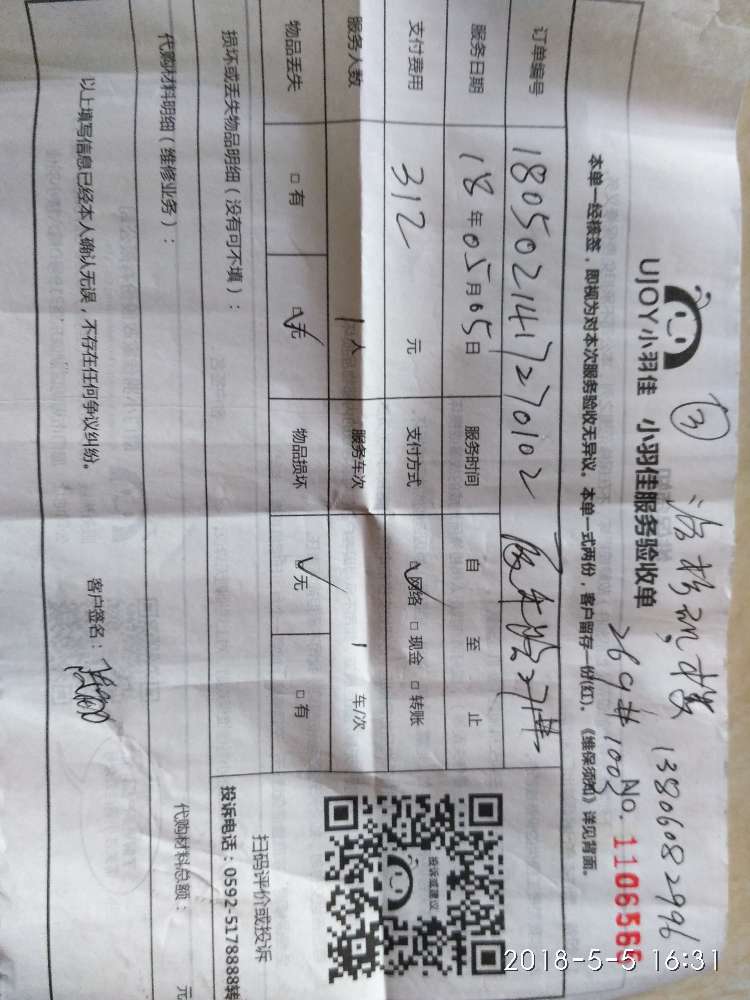 ③
13806082996
269#1003
UJOY小羽佳 小羽佳服务验收单
No. 1106566
本单一经核签，即视为对本次服务验收无异议。本单一式两份，客户留存一份(红)。《维保须知》详见背面。
订单编号 1805021417270102
服务日期 18年05月05日 服务时间 自 至 止
支付费用 312 元 支付方式 ☑网络 □现金 □转账
服务人数 1人 服务车次 1 车/次
物品丢失 □有 ☑无 物品损坏 ☑无 □有
损坏或丢失物品明细（没有可不填）：
投诉或建议
扫码评价或投诉
投诉电话：0592-5178888转
代购材料明细（维修业务）：
代购材料总额： 元
以上填写信息已经本人确认无误，不存在任何争议纠纷。
客户签名：
2018-5-5 16:31